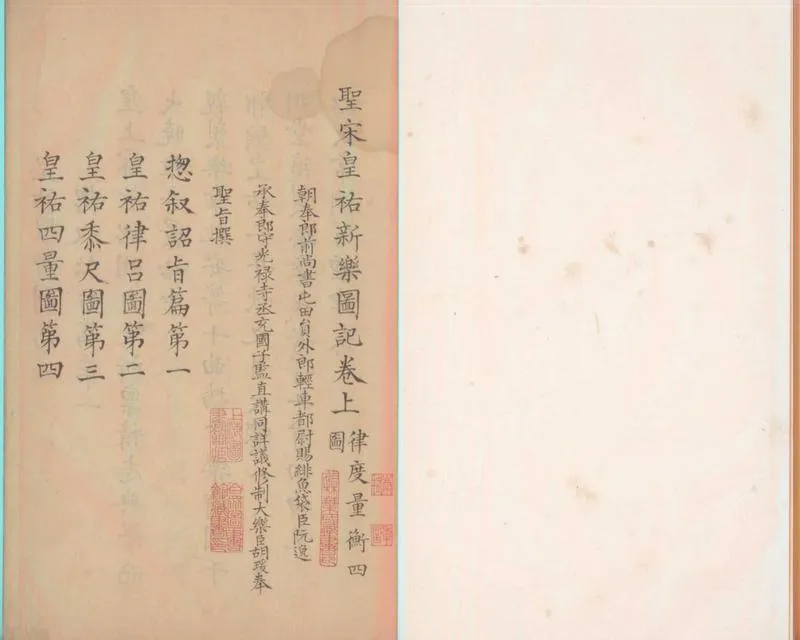 聖宋皇祐新樂圖記卷上 律度量衡四圖
朝奉郎前尚書屯田員外郎輕車都尉賜緋魚袋臣阮逸
承奉郎守光禄寺丞充國子監直講同詳議修制大樂臣胡瑗奉
聖旨撰
惣叙詔旨篇第一
皇祐律呂圖第二
皇祐黍尺圖第三
皇祐四量圖第四